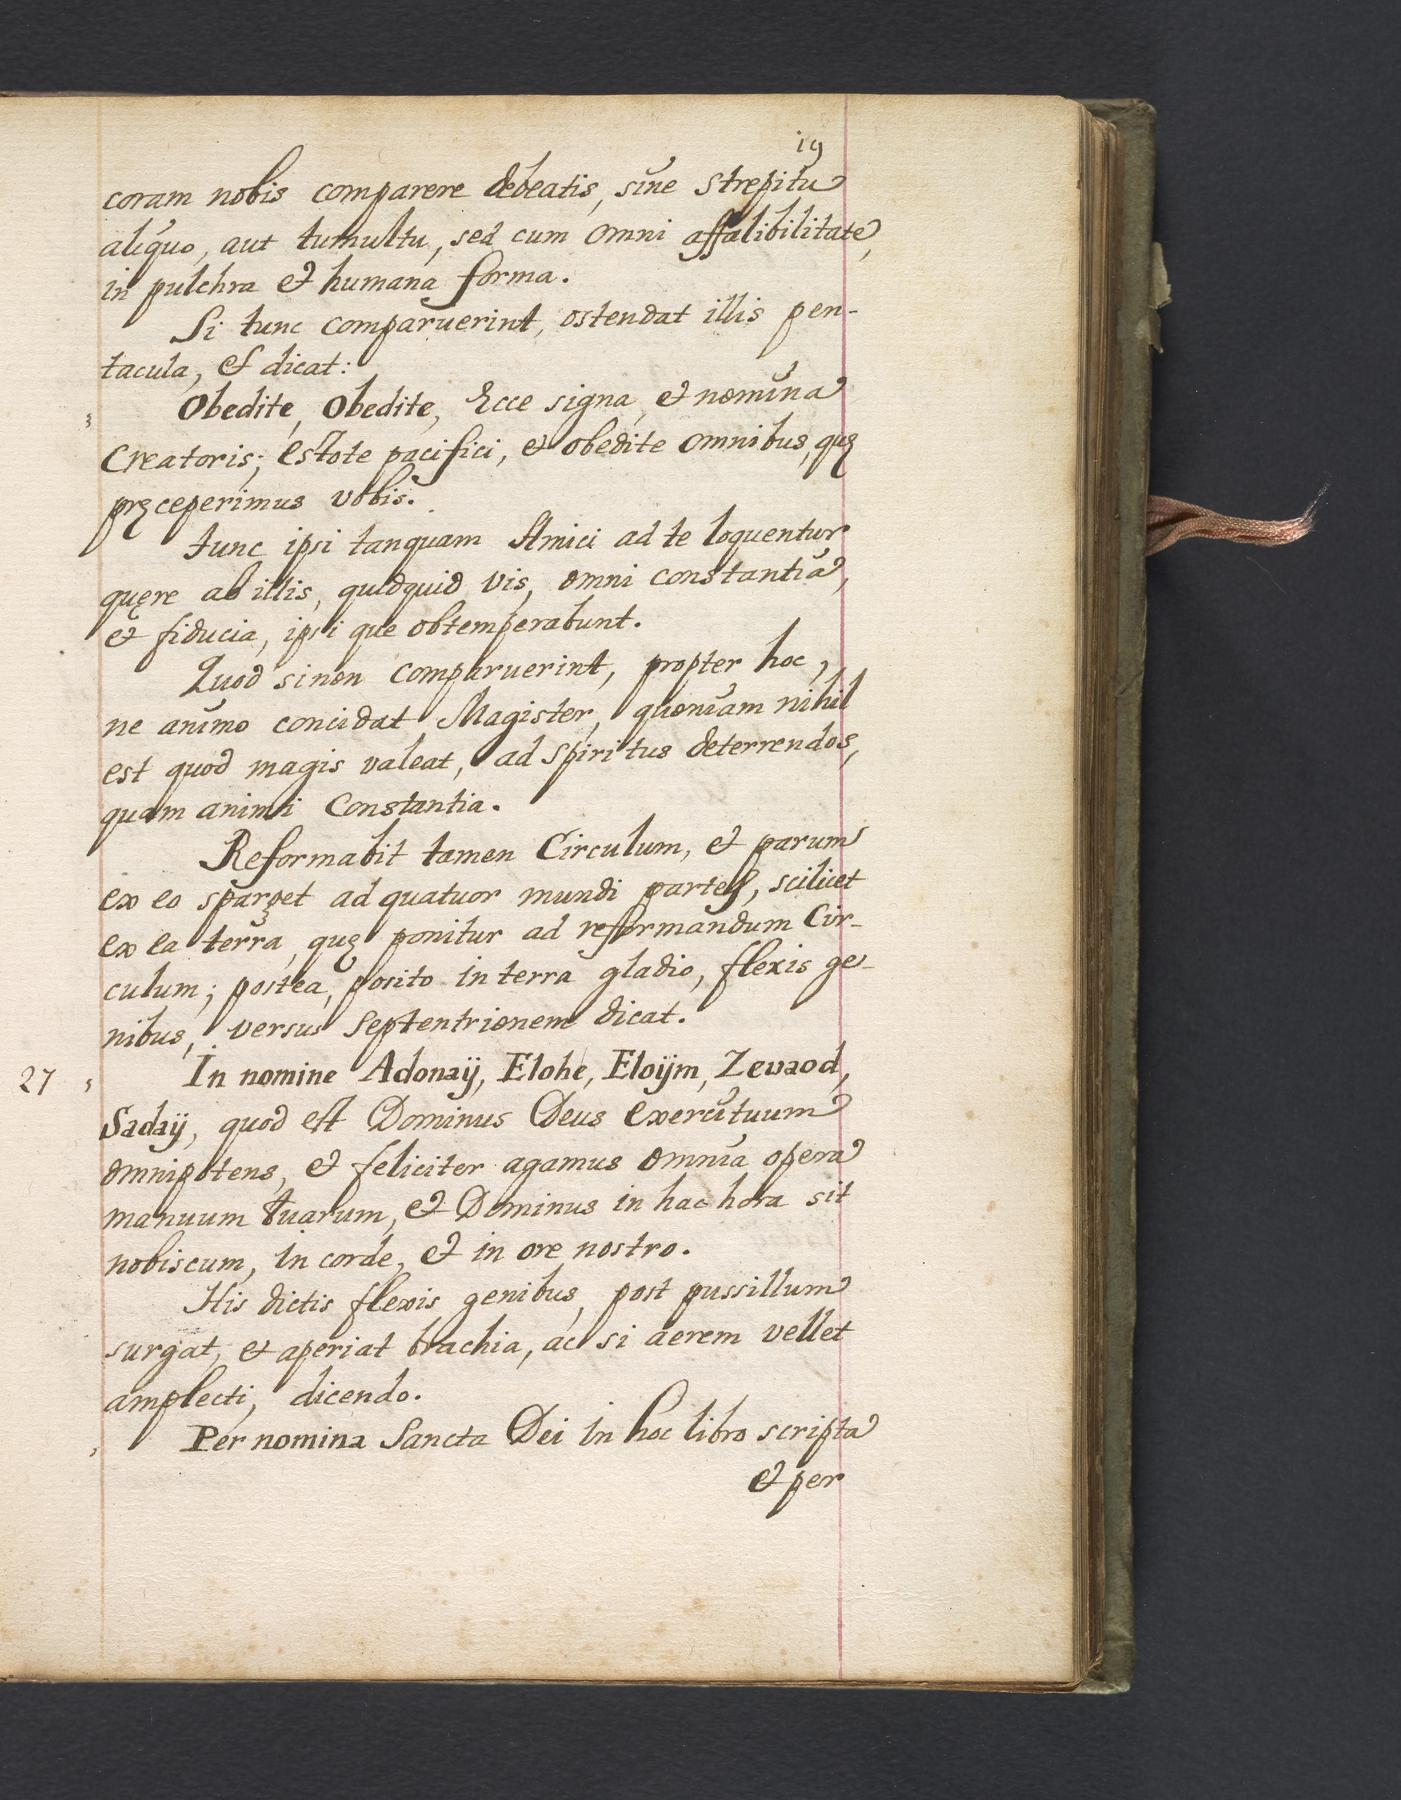 19
coram nobis comparere debeatis, sine strepitu
aliquo, aut tumultu, sed cum omni affalibilitate,
in pulchra et humana forma.
Si tunc comparuerint, ostendat illis pen-
tacula, et dicat:
Obedite, Obedite, Ecce signa, et nomina
Creatoris; estote pacifici, et obedite omnibus, quę
pręceperimus vobis.
tunc ipsi tanquam Amici ad te loquentur
quęre ab illis, quidquid vis, omni constantia,
et fiducia, ipsi que obtemperabunt.
Quod sinon comparuerint, propter hoc,
ne animo concidat Magister, quoniam nihil
est quod magis valeat, ad spiritus deterrendos,
quam animi Constantia.
Reformabit tamen Circulum, et parum
ex eo sparget ad quatuor mundi partes, scilicet
ex ea terra, quę ponitur ad reformandum Cir-
culum; postea, posito in terra gladio, flexis ge-
nibus, versus Septentrionem dicat.
27 In nomine Adonaÿ, Elohe, Eloÿm, Zevaod,
Sadaÿ, quod est Dominus Deus exercituum
omnipotens, et feliciter agamus omnia opera
manuum tuarum, et Dominus in hac hora sit
nobiscum, in corde, et in ore nostro.
His dictis flexis genibus, post pussillum
surgat, et aperiat brachia, ac si aerem vellet
amplecti, dicendo.
Per nomina Sancta Dei in hoc libro scripta
et per